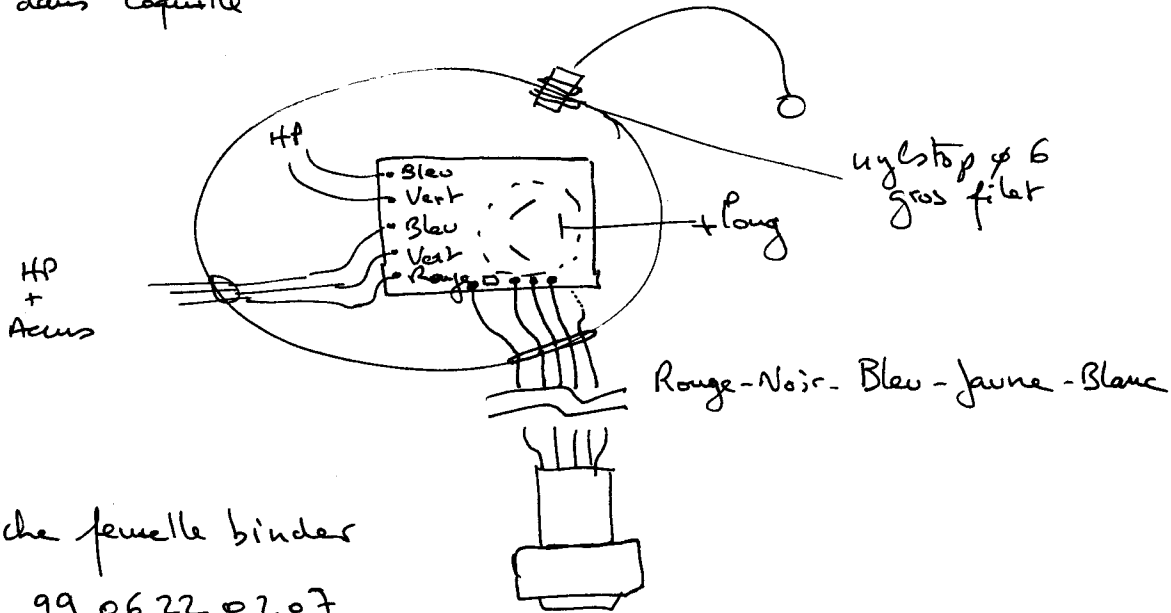 dans coquille
HP
Bleu
Vert
Bleu
Vert
Rouge
HP
+
Accus
nylstop ø 6
gros filet
+ long
Rouge-Noir-Bleu-Jaune-Blanc
che femelle binder
99 0622 02 07